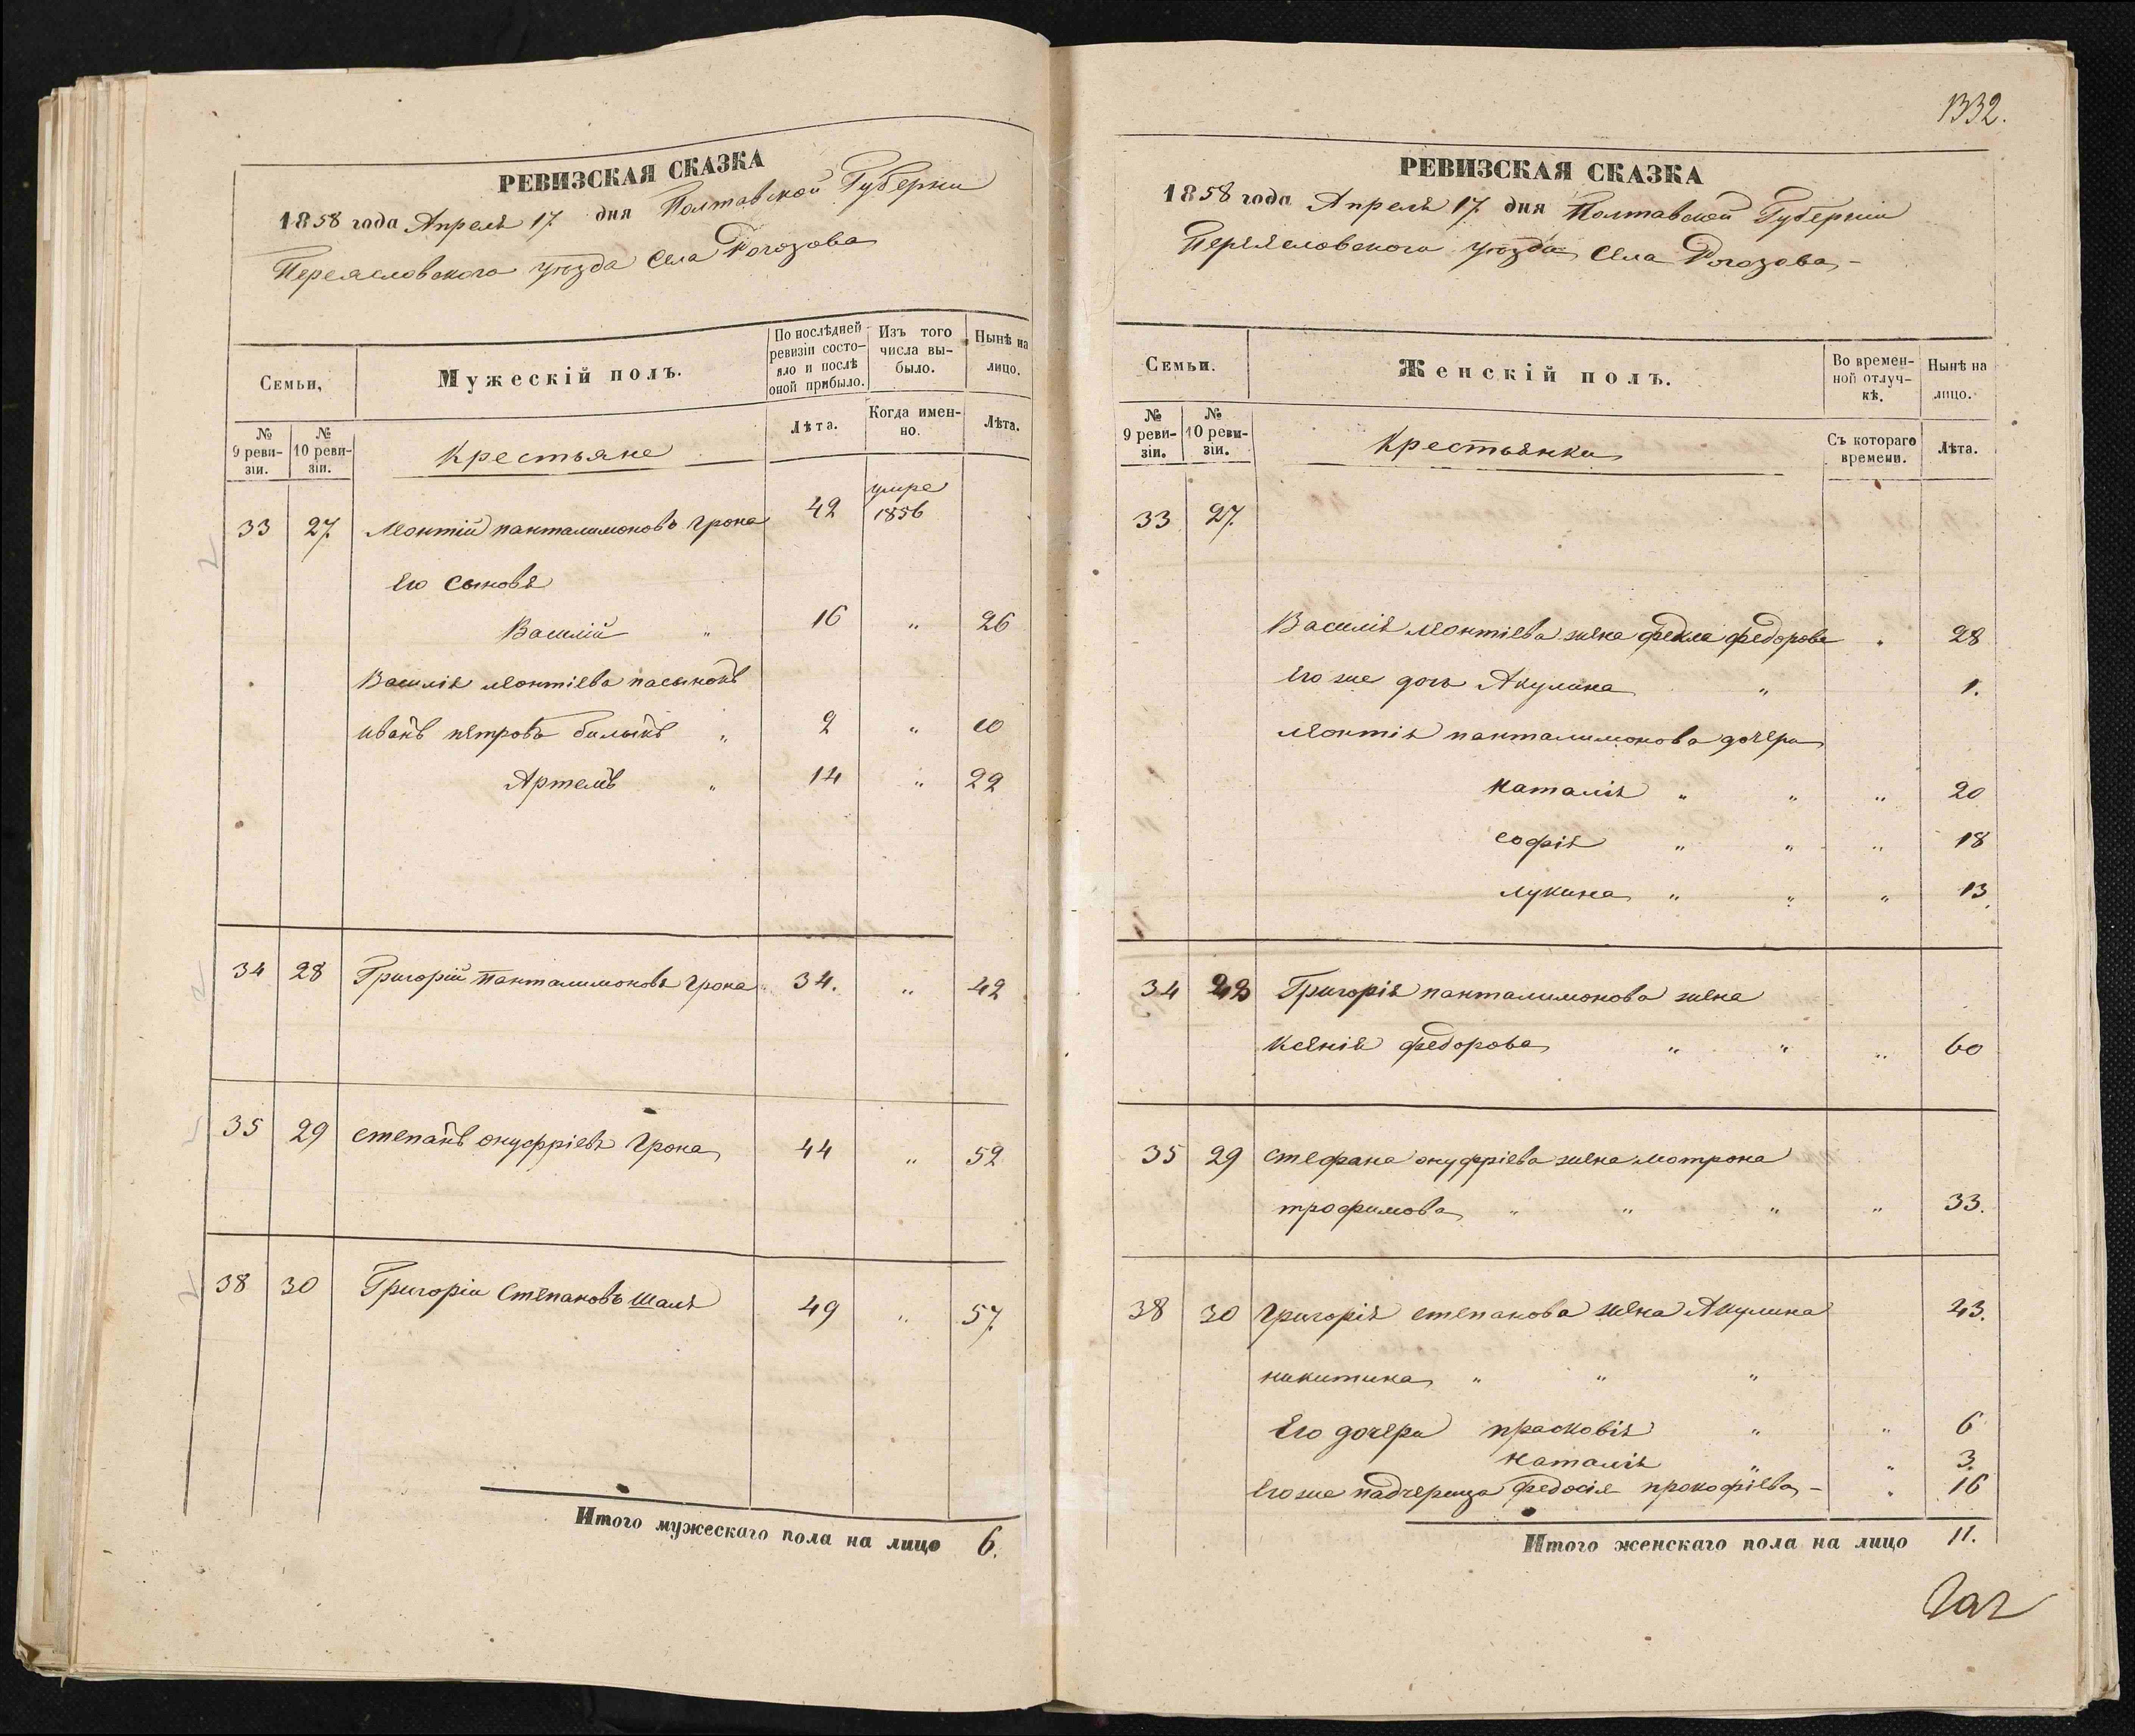 РЕВИЗСКАЯ СКАЗКА
1858 года Апреля 17 дня Полтавской Губернии
Переясловского уѣзда Села Рогозова
Семьи,
Мужескій полъ.
По послѣдней ревизіи состояло и послѣ оной прибыло.
Изъ того числа выбыло.
Нынѣ на лицо.
№ 9 ревизіи.
№ 10 ревизіи.
Крестьяне
Лѣта.
Когда именно.
Лѣта.
33 27. Леонтій панталимоновъ Грона 42 умре 1856
Его сыновя
Василій " 16 " 26
Василія леонтіева пасынокъ
иванъ петровъ билыкъ " 2 " 10
Артемъ " 14 " 22
34 28 Григорій Панталимоновъ Грона 34. " 42
35 29 степанъ онуфріевъ Грона 44 " 52
38 30 Григорій Степановъ Шаля 49 " 57.
Итого мужескаго пола на лицо 6.
1332.
РЕВИЗСКАЯ СКАЗКА
1858 года Апреля 17. дня Полтавской Губерніи
Переясловского уѣзда Села Рогозова
Семьи.
Женскій полъ.
Во временной отлучкѣ.
Нынѣ на лицо.
№ 9 ревизіи.
№ 10 ревизіи.
Крестьянки
Съ котораго времени.
Лѣта.
33 27.
Василія леонтіева жена фекла федорова " 28
Его же дочь Акулина " 1.
леонтія панталимонова дочери
наталія " " " 20
софія " " " 18
лукина " " " 13
34 28 Григорія панталимонова жена
Ксенія федорова " " " 60
35 29 стефана онуфріева жена мотрона
трофимова " " " " 33.
38 30 григорія степанова жена Акулина 43.
никитина " " "
Его дочери прасковія " " 6
наталія " " 3.
Его же падчерица федосія прокофіева - " 16
Итого женскаго пола на лицо 11.